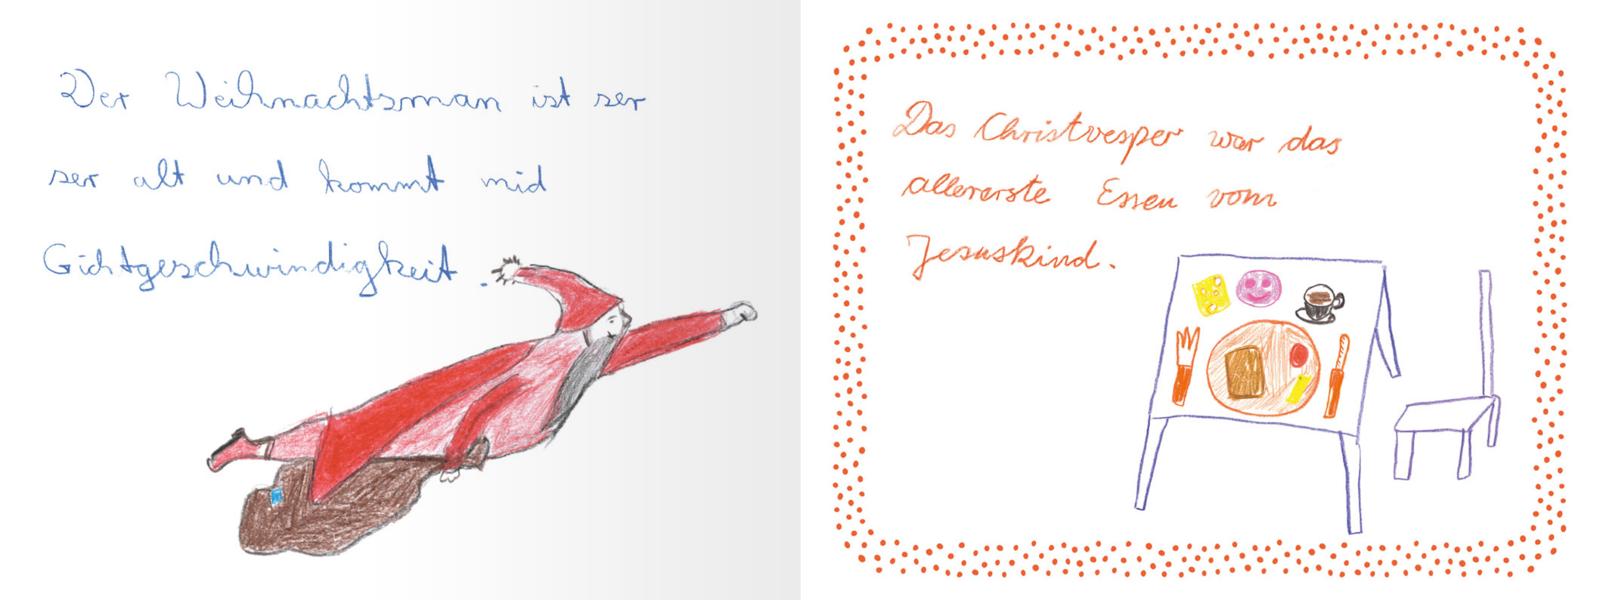 Der Weihnachtsman ist ser
ser alt und kommt mid
Gichtgeschwindigkeit.
Das Christvesper war das
allererste Essen vom
Jesuskind.